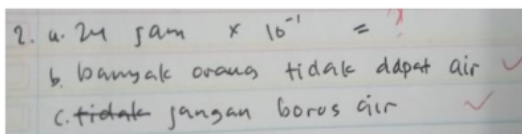 2. a. 24 jam x 10⁻¹ = ?
b. banyak orang tidak dapat air ✓
c. tidak jangan boros air ✓